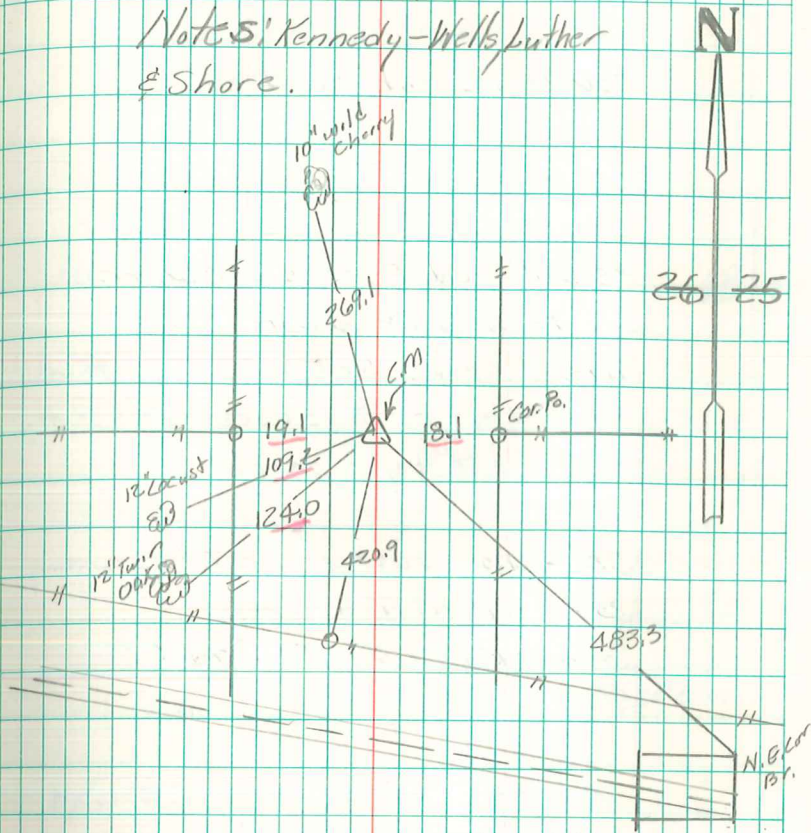 Notes: Kennedy-Wells, Luther
& Shore.
N
10" wild
Cherry
26 25
269.1
C.M
19.1
18.1
Cor. Po.
109.2
12" Locust
124.0
12" Twin
Oak
420.9
483.3
N.E. Cor
Br.